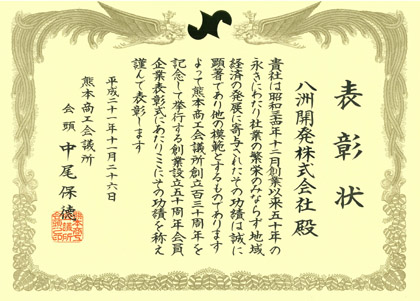 表彰状
八洲開発株式会社 殿
貴社は昭和三四年十二月創業以来五十年の
永きにわたり社業の繁栄のみならず地域
経済の発展に寄与されたその功績は誠に
顕著であり他の模範とするものであります
よって熊本商工会議所創立百三十周年を
記念して挙行する創業設立五十周年会員
企業表彰式にあたりここにその功績を称え
謹んで表彰します
平成二十一年十一月二十六日
熊本商工会議所
会頭 中尾保徳